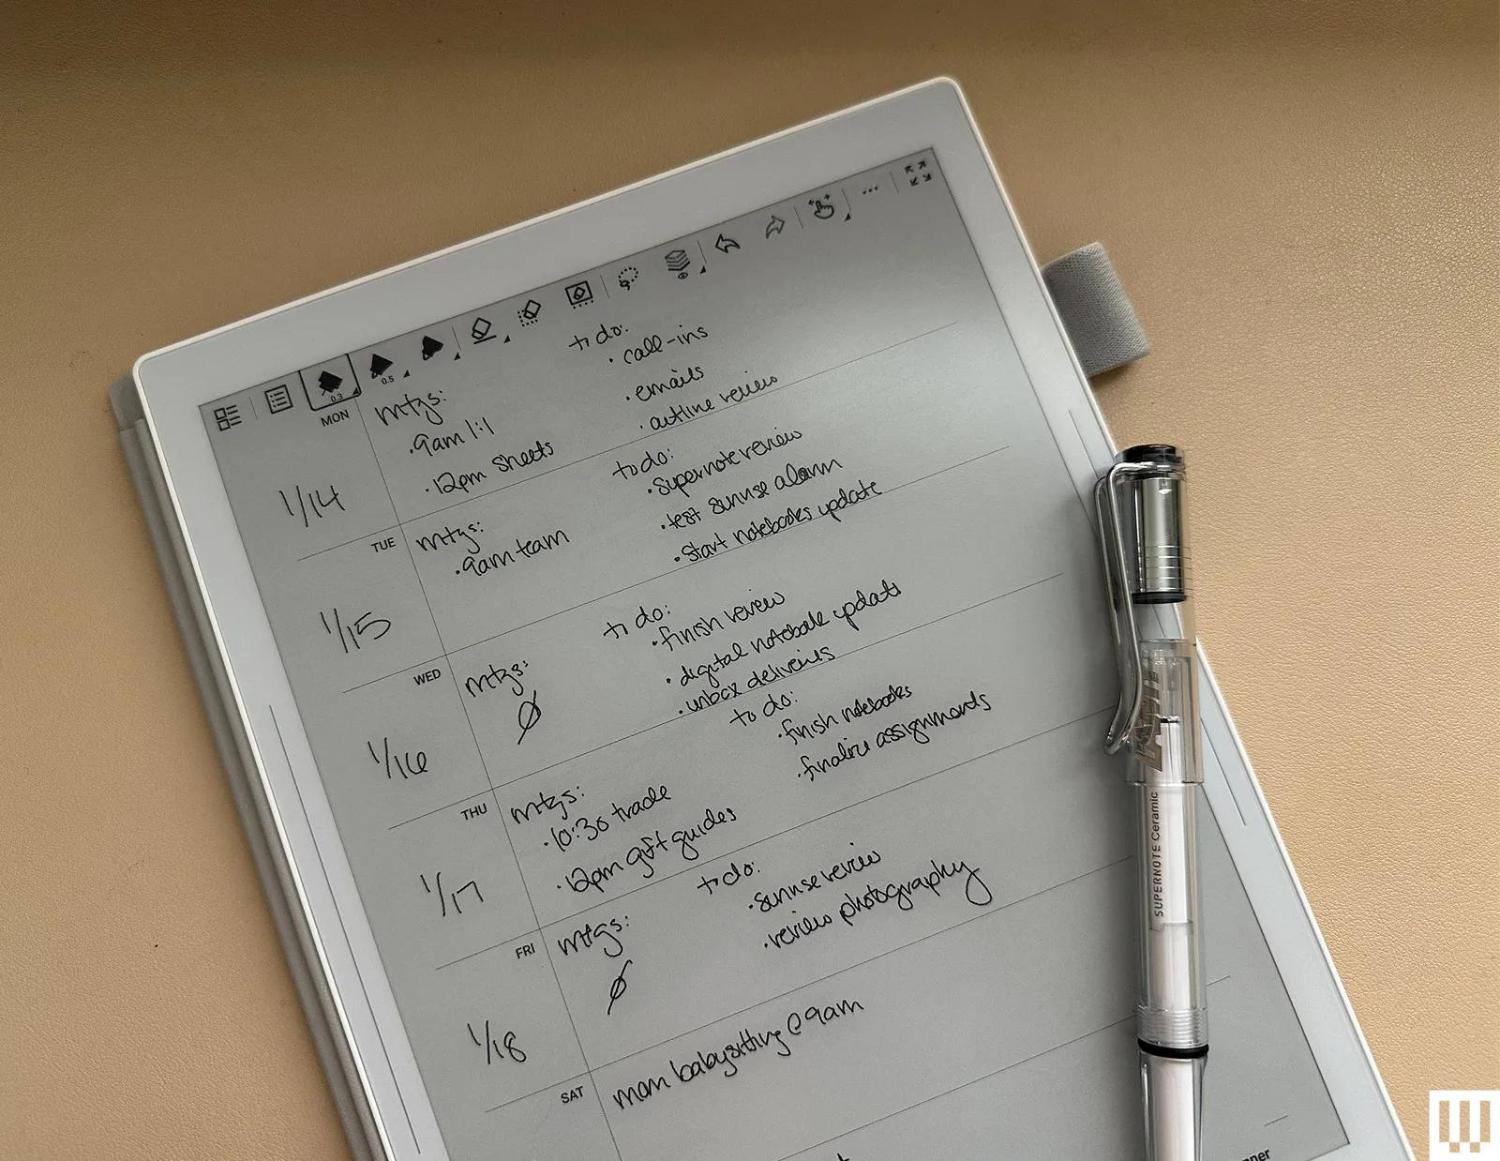 0.3
0.5
MON
1/14
mtgs:
· 9am 1:1
· 12pm Sheets
to do:
· call-ins
· emails
· outline review
TUE
1/15
mtgs:
· 9am team
to do:
· Supernote review
· test sunrise alarm
· Start notebooks update
WED
1/16
mtgs:
Ø
to do:
· finish review
· digital notebook update
· unbox deliveries
THU
1/17
mtgs:
· 10:30 trade
· 12pm gift guides
to do:
· finish notebooks
· finalize assignments
FRI
1/18
mtgs:
Ø
to do:
· Sunrise review
· review photography
SAT
mom babysitting @ 9am
LAMY
SUPERNOTE Ceramic
W